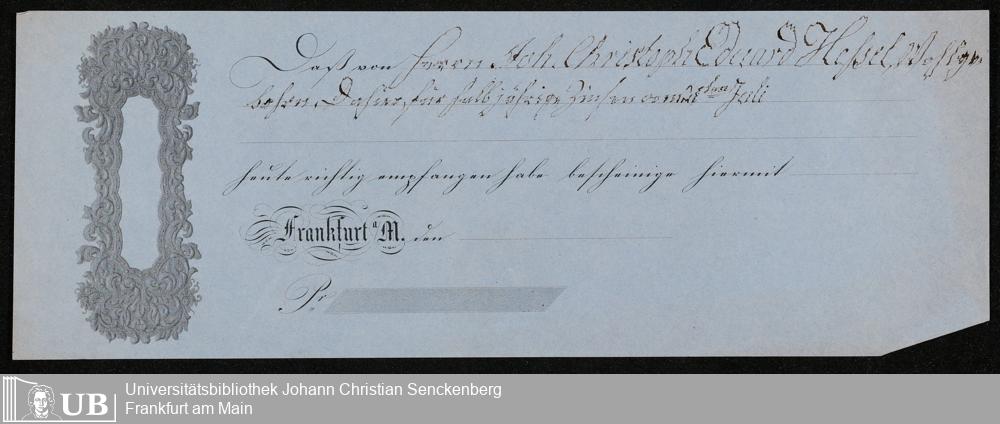 Dass von Herrn Joh. Christoph Eduard Hessel, Wohlge-
bohrn, Dahier, für halbjährige Zinsen vom 21sten Juli
heute richtig empfangen habe bescheinige hiermit
Frankfurt a M. den
Pr.
UB
Universitätsbibliothek Johann Christian Senckenberg
Frankfurt am Main